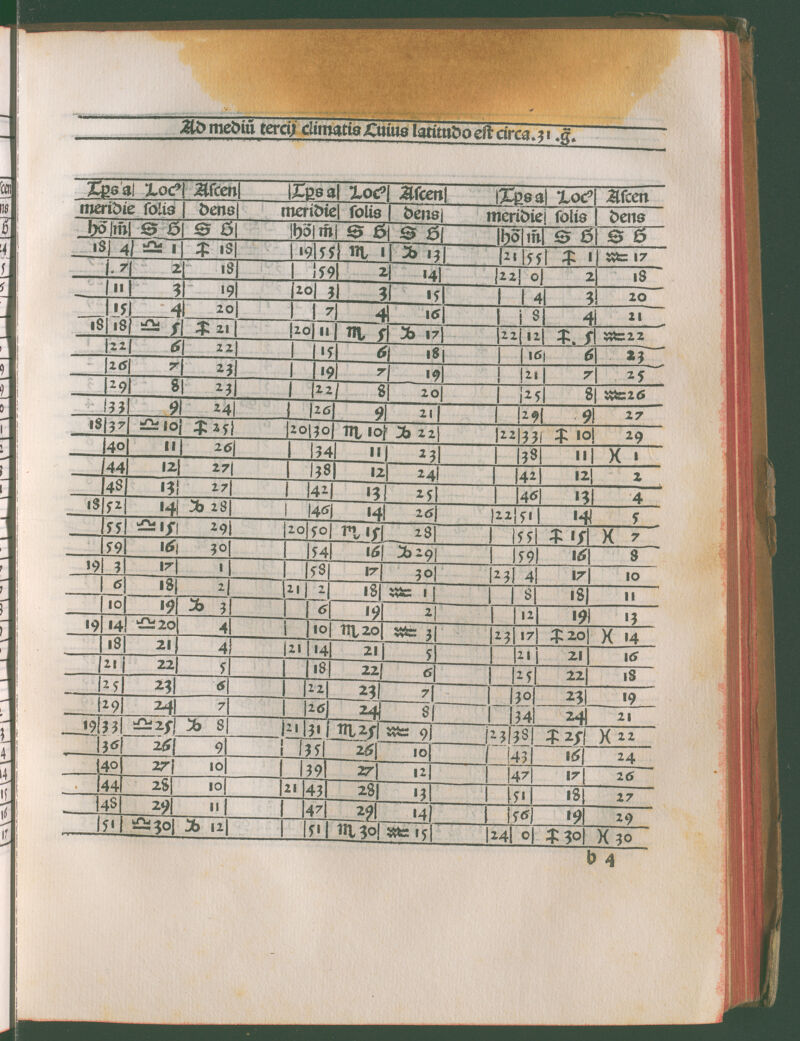 Ad mediū tercij climatis Cuius latitudo est circa .31 .g̃.
Tp̱s a Locꝰ Ascen | Tp̱s a Locꝰ Ascen | Tp̱s a Locꝰ Ascen
meridie solis dens | meridie solis dens | meridie solis dens
hō m̄ S G S G | hō m̄ S G S G | hō m̄ S G S G
18 4 ♎ 1 ♐ 18 | 19 55 ♏ 1 ♑ 13 | 21 55 ♐ 1 ♒ 17
7 2 18 | 59 2 14 | 22 0 2 18
11 3 19 | 20 3 3 15 | 4 3 20
15 4 20 | 7 4 16 | 8 4 21
18 18 ♎ 5 ♐ 21 | 20 11 ♏ 5 ♑ 17 | 22 12 ♐ 5 ♒ 22
22 6 22 | 15 6 18 | 16 6 23
26 7 23 | 19 7 19 | 21 7 25
29 8 23 | 22 8 20 | 25 8 ♒ 26
33 9 24 | 26 9 21 | 29 9 27
18 37 ♎ 10 ♐ 25 | 20 30 ♏ 10 ♑ 22 | 22 33 ♐ 10 29
40 11 26 | 34 11 23 | 38 11 ♓ 1
44 12 27 | 38 12 24 | 42 12 2
48 13 27 | 42 13 25 | 46 13 4
18 52 14 ♑ 28 | 46 14 26 | 22 51 14 5
55 ♎ 15 29 | 20 50 ♏ 15 28 | 55 ♐ 15 ♓ 7
59 16 30 | 54 16 ♑ 29 | 59 16 8
19 3 17 1 | 58 17 30 | 23 4 17 10
6 18 2 | 21 2 18 ♒ 1 | 8 18 11
10 19 ♑ 3 | 6 19 2 | 12 19 13
19 14 ♎ 20 4 | 10 ♏ 20 ♒ 3 | 23 17 ♐ 20 ♓ 14
18 21 4 | 21 14 21 5 | 21 21 16
21 22 5 | 18 22 6 | 25 22 18
25 23 6 | 22 23 7 | 30 23 19
29 24 7 | 26 24 8 | 34 24 21
19 33 ♎ 25 ♑ 8 | 21 31 ♏ 25 ♒ 9 | 23 38 ♐ 25 ♓ 22
36 26 9 | 35 26 10 | 43 16 24
40 27 10 | 39 27 12 | 47 17 26
44 28 10 | 21 43 28 13 | 51 18 27
48 29 11 | 47 29 14 | 56 19 29
51 ♎ 30 ♑ 12 | 51 ♏ 30 ♒ 15 | 24 0 ♐ 30 ♓ 30
b 4